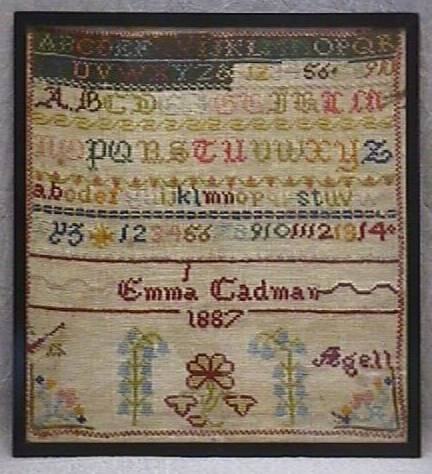 ABCDEF HIJKLMNOPQR
UVWXYZ& 12 56
A.BCDEFGHIKLM
NOPQRSTUVWXYZ
abcdef ijklmnopq stuv
yz 1234567891011121314
Emma Cadman
1887
Age11